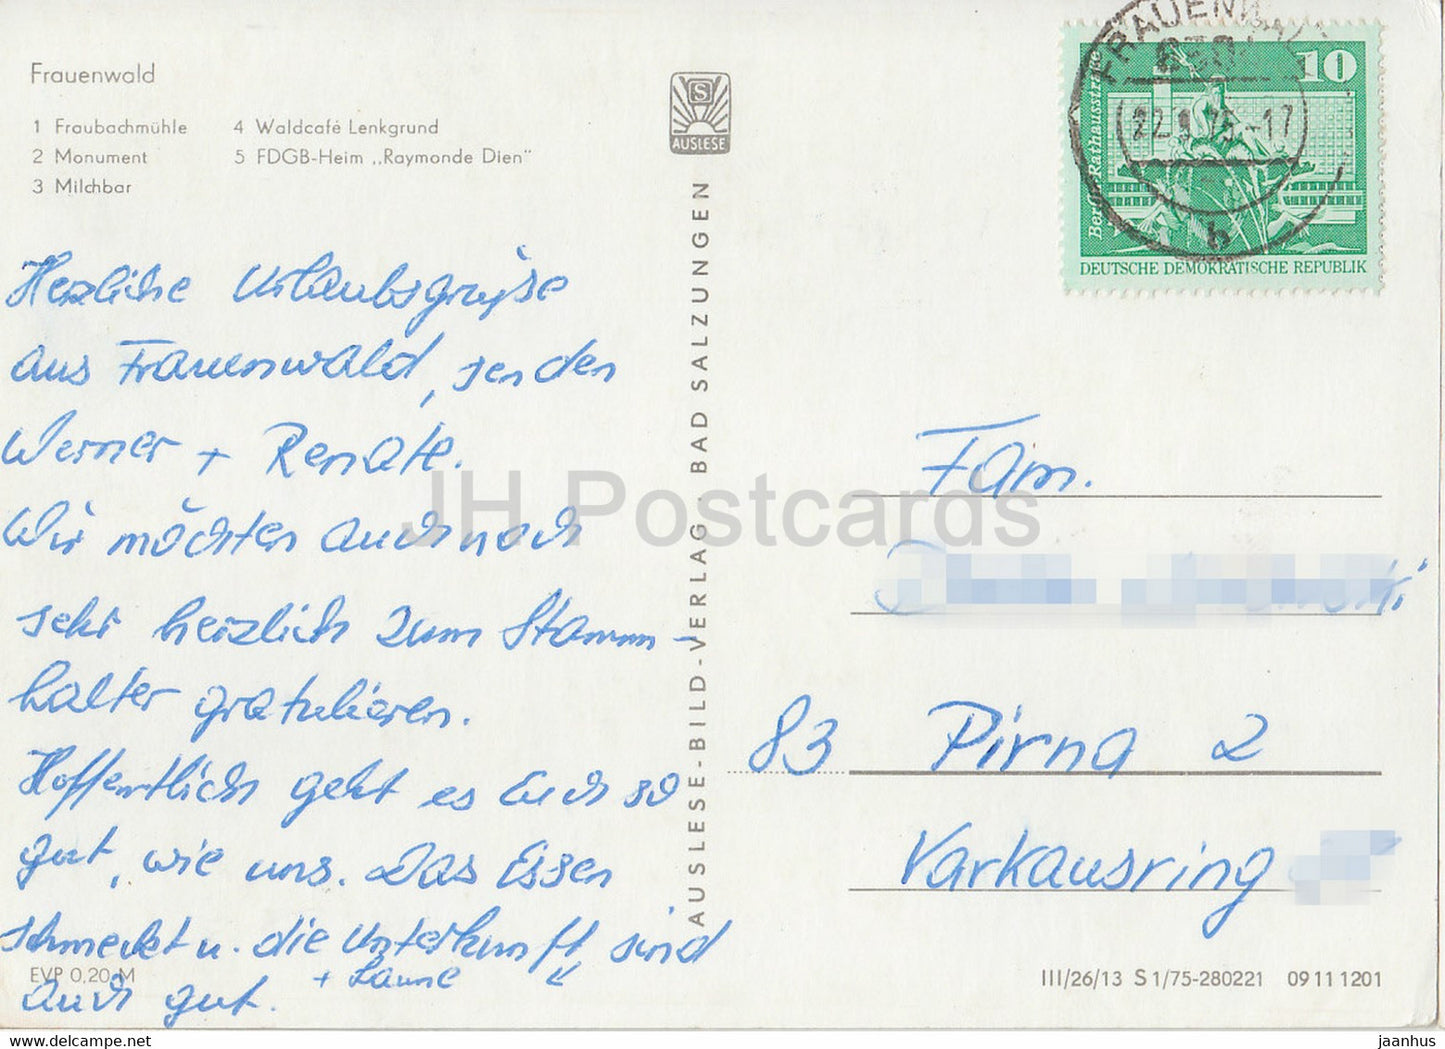 Frauenwald
1 Fraubachmühle
2 Monument
3 Milchbar
4 Waldcafé Lenkgrund
5 FDGB-Heim „Raymonde Dien"
S
AUSLESE
Herzliche Urlaubsgrüße
aus Frauenwald, senden
Werner + Renate.
Wir möchten auch noch
sehr herzlich zum Stamm-
halter gratulieren.
Hoffentlich geht es Euch so
gut, wie uns. Das Essen
schmeckt u. die Unterkunft, sind
+ Laune
auch gut.
EVP 0,20 M
AUSLESE-BILD-VERLAG · BAD SALZUNGEN
FRAUENWALD
22. -17
b
10
Berlin-Rathausstraße
DEUTSCHE DEMOKRATISCHE REPUBLIK
Fam.
83 Pirna 2
Varkausring
III/26/13 S 1/75-280221 09 11 1201
JH Postcards
Frauenwald - Fraubachmühle - Milchbar - FDGB Heim Raymonde Dien - old postcard - 1975 - Germany DDR - used
jaanhus ecrater com